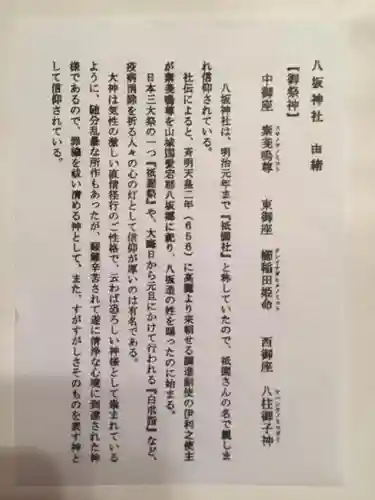 八坂神社 由緒
【御祭神】
中御座 素戔嗚尊 東御座 櫛稲田姫命 西御座 八柱御子神
八坂神社は、明治元年まで『祇園社』と称していたので、祇園さんの名で親しま
れ信仰されている。
社伝によると、斉明天皇二年(656)に高麗より来朝せる調進副使の伊利之使主
が素戔嗚尊を山城国愛宕郡八坂郷に祀り、八坂造の姓を賜ったのに始まる。
日本三大祭の一つ『祇園祭』や、大晦日から元旦にかけて行われる『白朮詣』など、
疫病消除を祈る人々の心の灯として信仰が厚いのは有名である。
大神は気性の激しい直情径行のご性格で、云わば恐ろしい神様として崇まれている
ように、随分乱暴な所作もあったが、艱難辛苦されて遂に清浄な心境に到達された神
様であるので、罪穢を祓い清める神として、また、すがすがしさそのものを表す神と
して信仰されている。